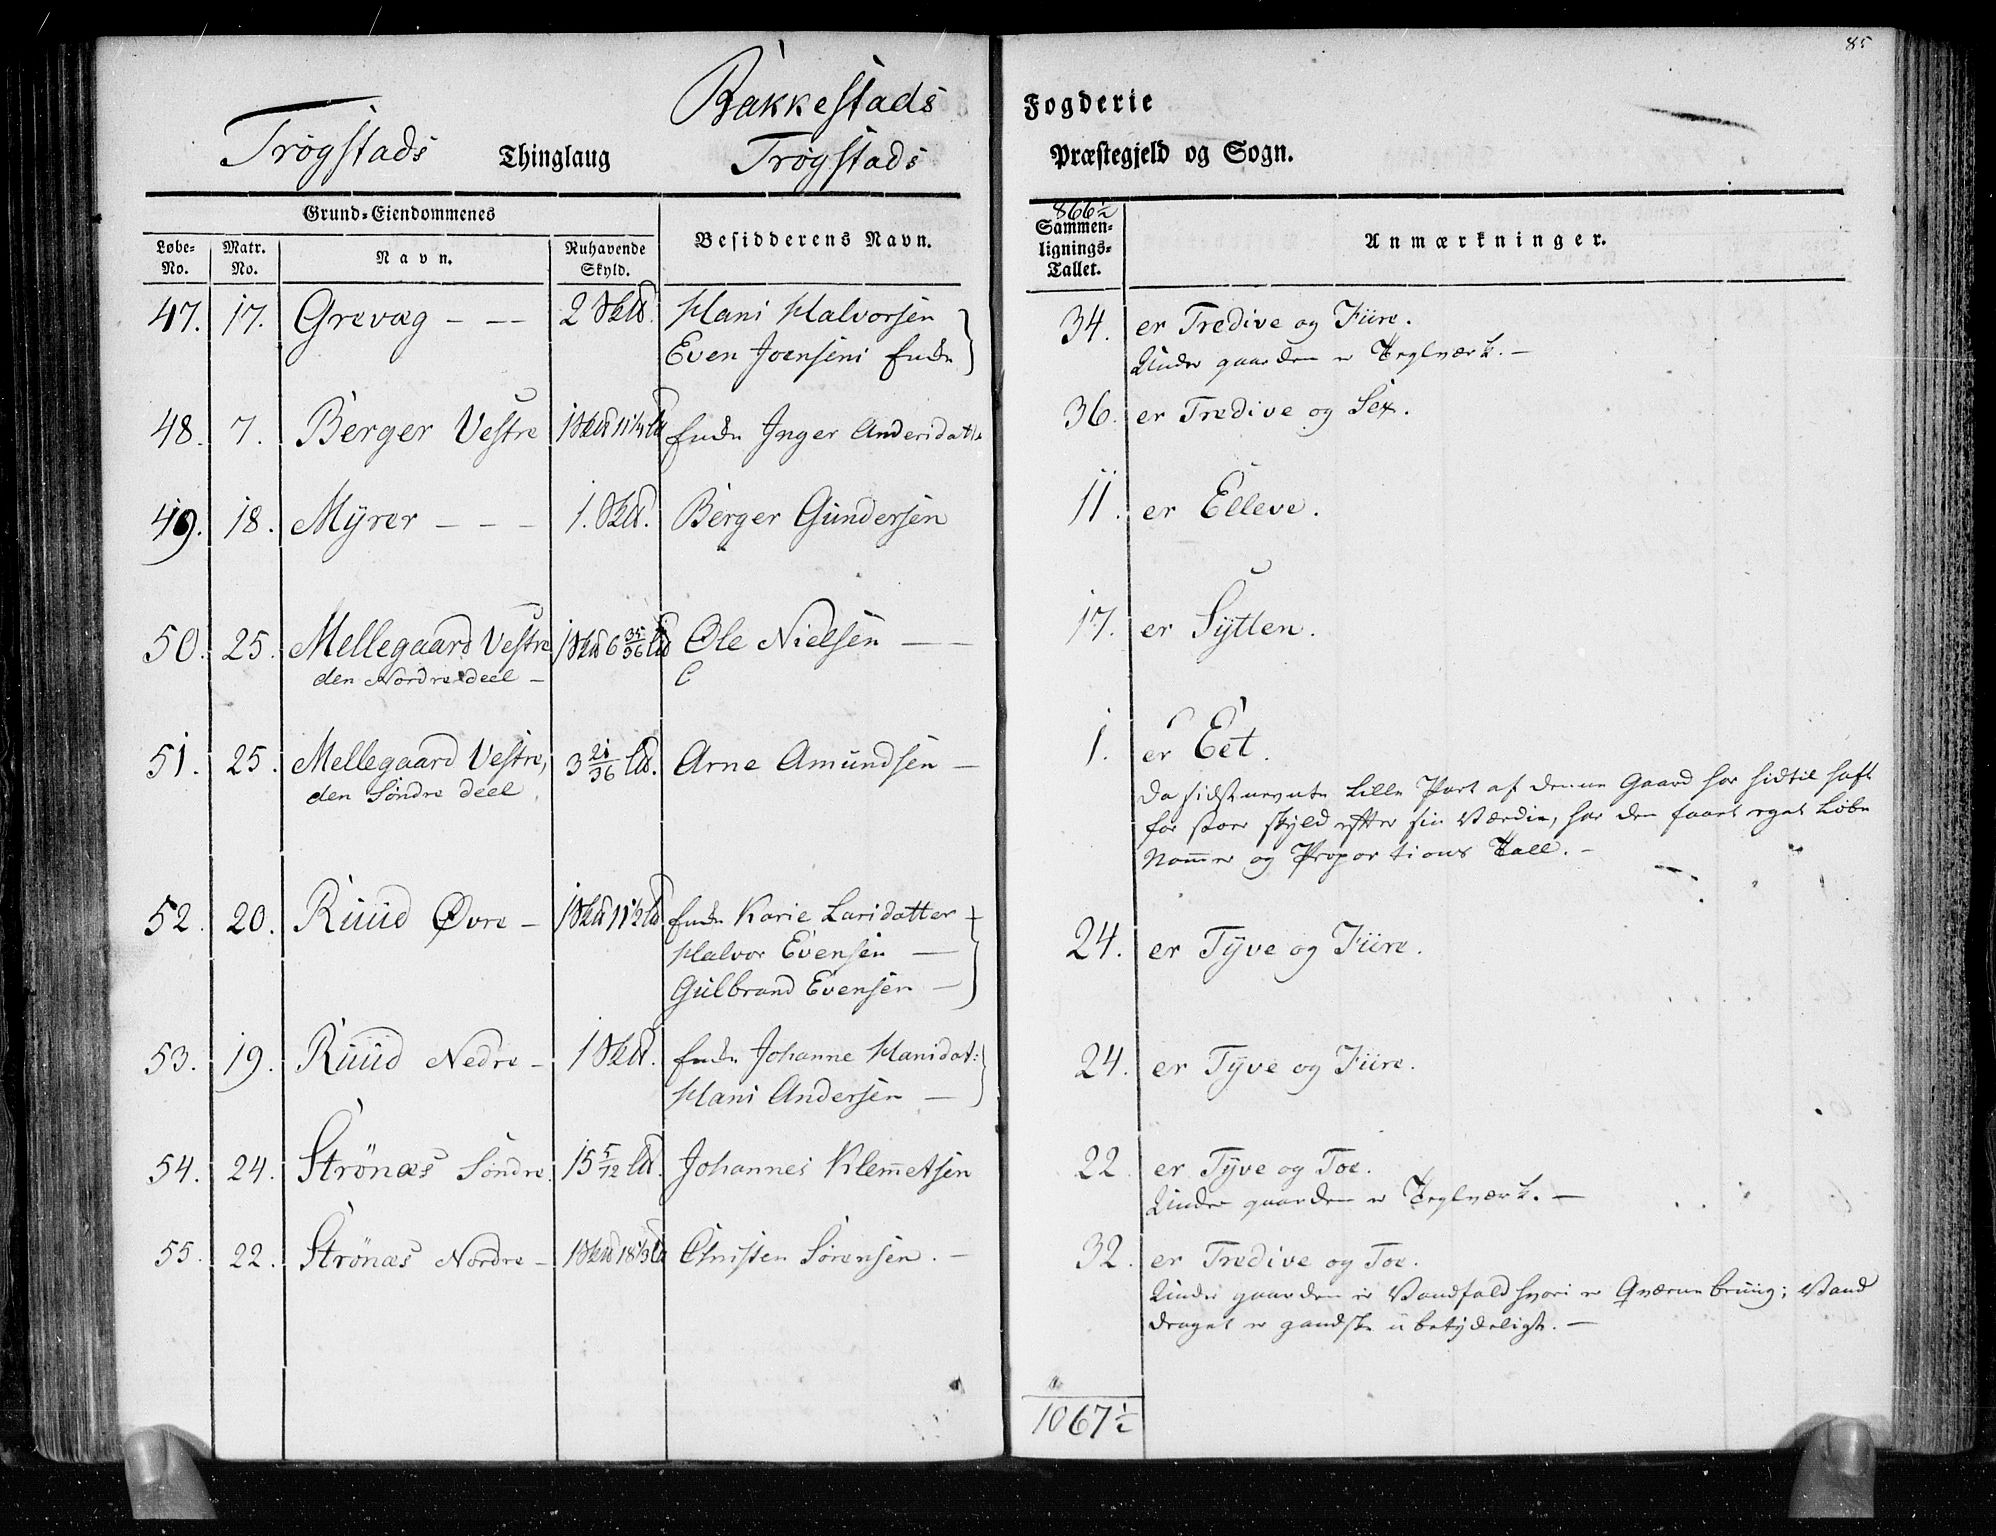 85
Rakkestads Fogderie
Trøgstads Thinglaug Trøgstads Præstegjeld og Sogn.
Grund-Eiendommenes
Løbe-No. Matr. No. Navn. Nuhavende Skyld. Besidderens Navn. Sammenlignings-Tallet. Anmærkninger.
866½
47. 17. Grevæg - -- 2 Skld. Hans Halvorsen 34. er Tredive og Fiire.
Even Joensens Enke Under gaarden er Teglværk. -
48. 7. Berger Vestre 1 Skld 11 Ld Enke Inger Andersdatr 36. er Tredive og Sex.
49. 18. Myrer - - - 1. Skld. Berger Gundersen 11. er Elleve.
50. 25. Mellegaard Vestre 1 Skld 6 35/36 Ld Ole Nielsen -- 17. er Sytten.
den Nordre deel -
51. 25. Mellegaard Vestre, 3 21/36 Ld. Arne Amundsen - 1. er Eet.
den Søndre deel
Da sidstnevnte Lille Part af denne Gaard har hidtil haft
for stoer skyld efter sin Værdie, har den faaet eget Løbe
Nommer og Proportions Tall. -
52. 20. Ruud Øvre - 1 Skld 11½ Ld. Enke Karie Larsdatter 24. er Tyve og Fiire.
Halvor Evensen -
Gulbrand Evensen -
53. 19. Ruud Nedre - 1 Skld. Enke Johanne Hansdat: 24. er Tyve og Fiire.
Hans Andersen -
54. 24. Strønæs Søndre. 15 5/12 Ld. Johannes Klemetsen 22. er Tyve og Toe.
Under gaarden er Teglværk. -
55. 22. Strønæs Nordre - 1 Skld 18⅓ Ld Christen Sørensen. - 32. er Tredive og Toe.
Under gaarden er Vandfald hvori er Qværnebruug; Vand
draget er gandske ubetydeligt. -
1067½